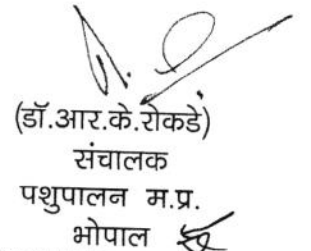 (डॉ.आर.के.रोकडे)
संचालक
पशुपालन म.प्र.
भोपाल